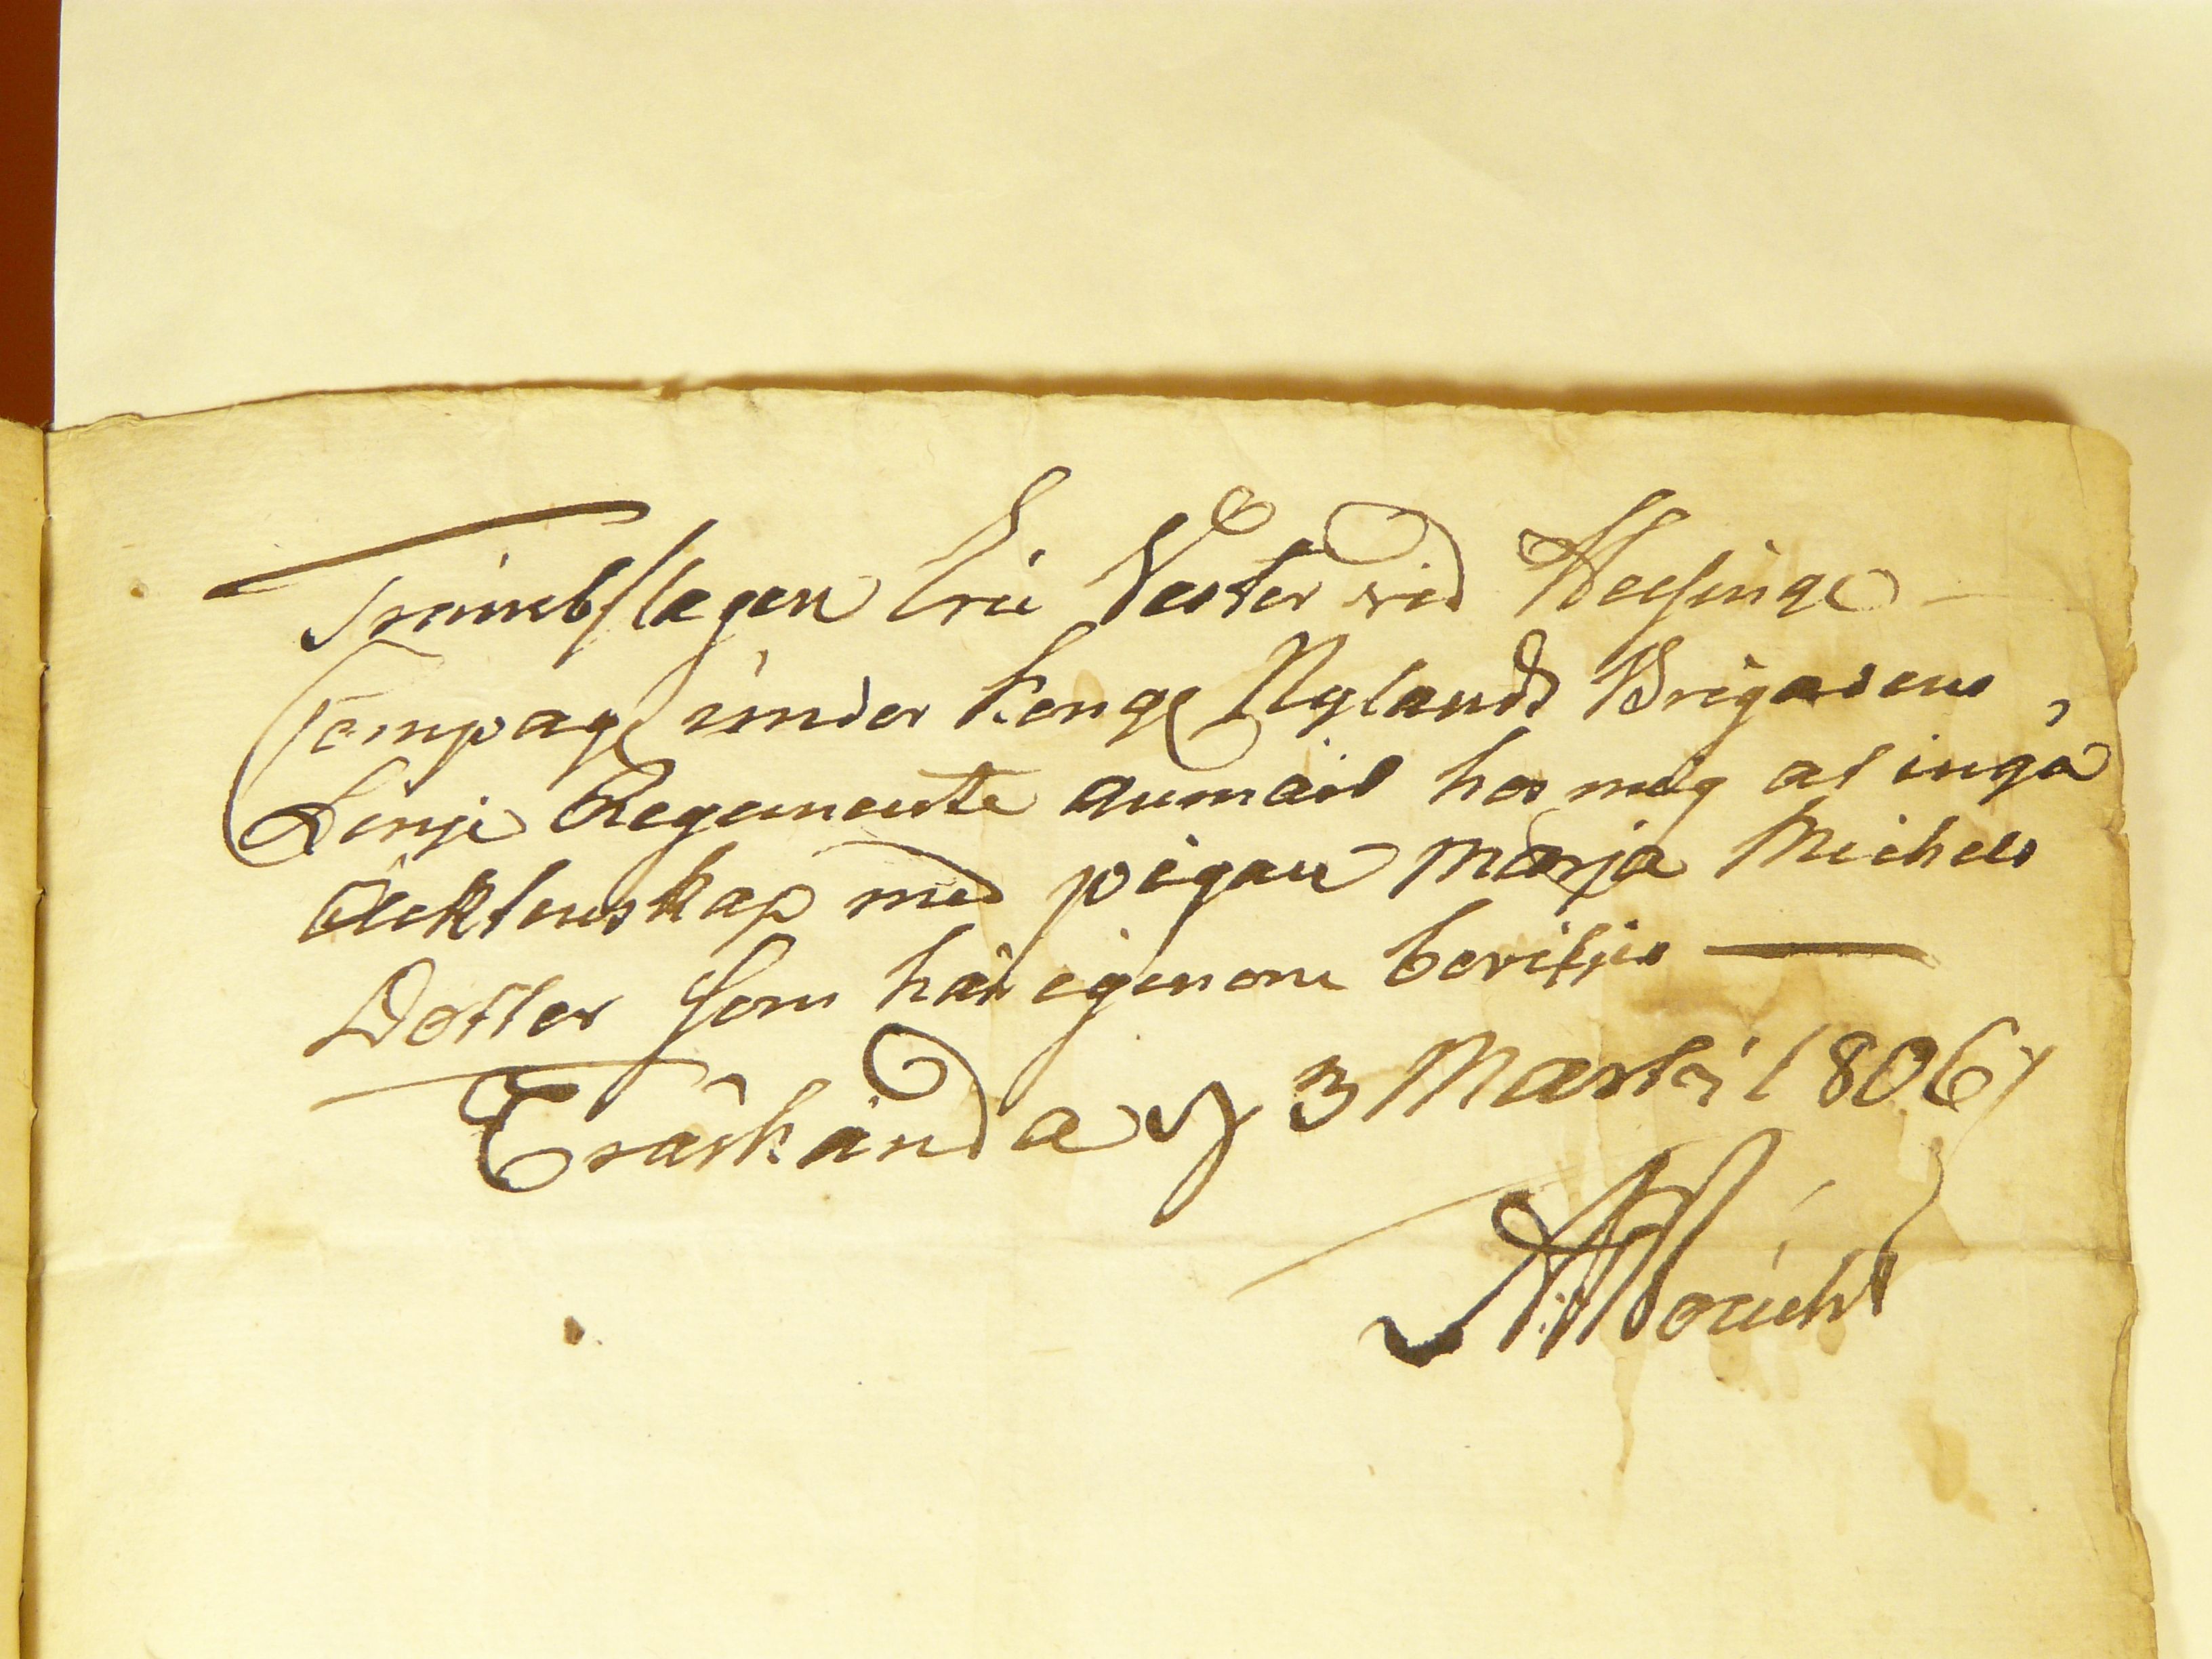 Trumbslagen Eric Vester vid Helsinge
Compag under kongl Nylands Brigadens
Linje Regemente anmäld hos mig at ingå
Äcktenskap med pigan Marja Michels
Dotter som här igenom beviljes —
Träskända d 3 Martii 1806